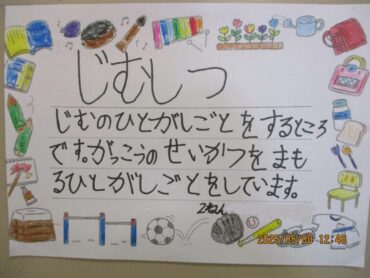 じむしつ
じむのひとがしごとをするところ
です。がっこうのせいかつをまも
るひとがしごとをしています。
2ねん
2025/05/09 12:46